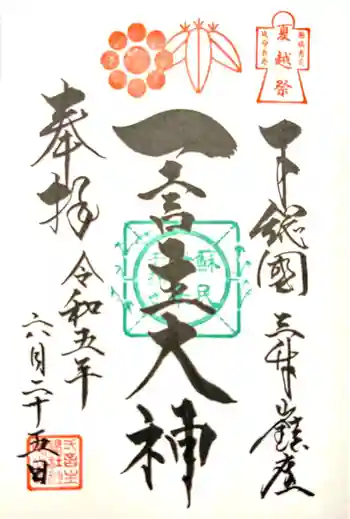 夏越祭
下総國 三竹山鎮座
一言主大神
蘇民
奉拝
令和五年
六月二十五日